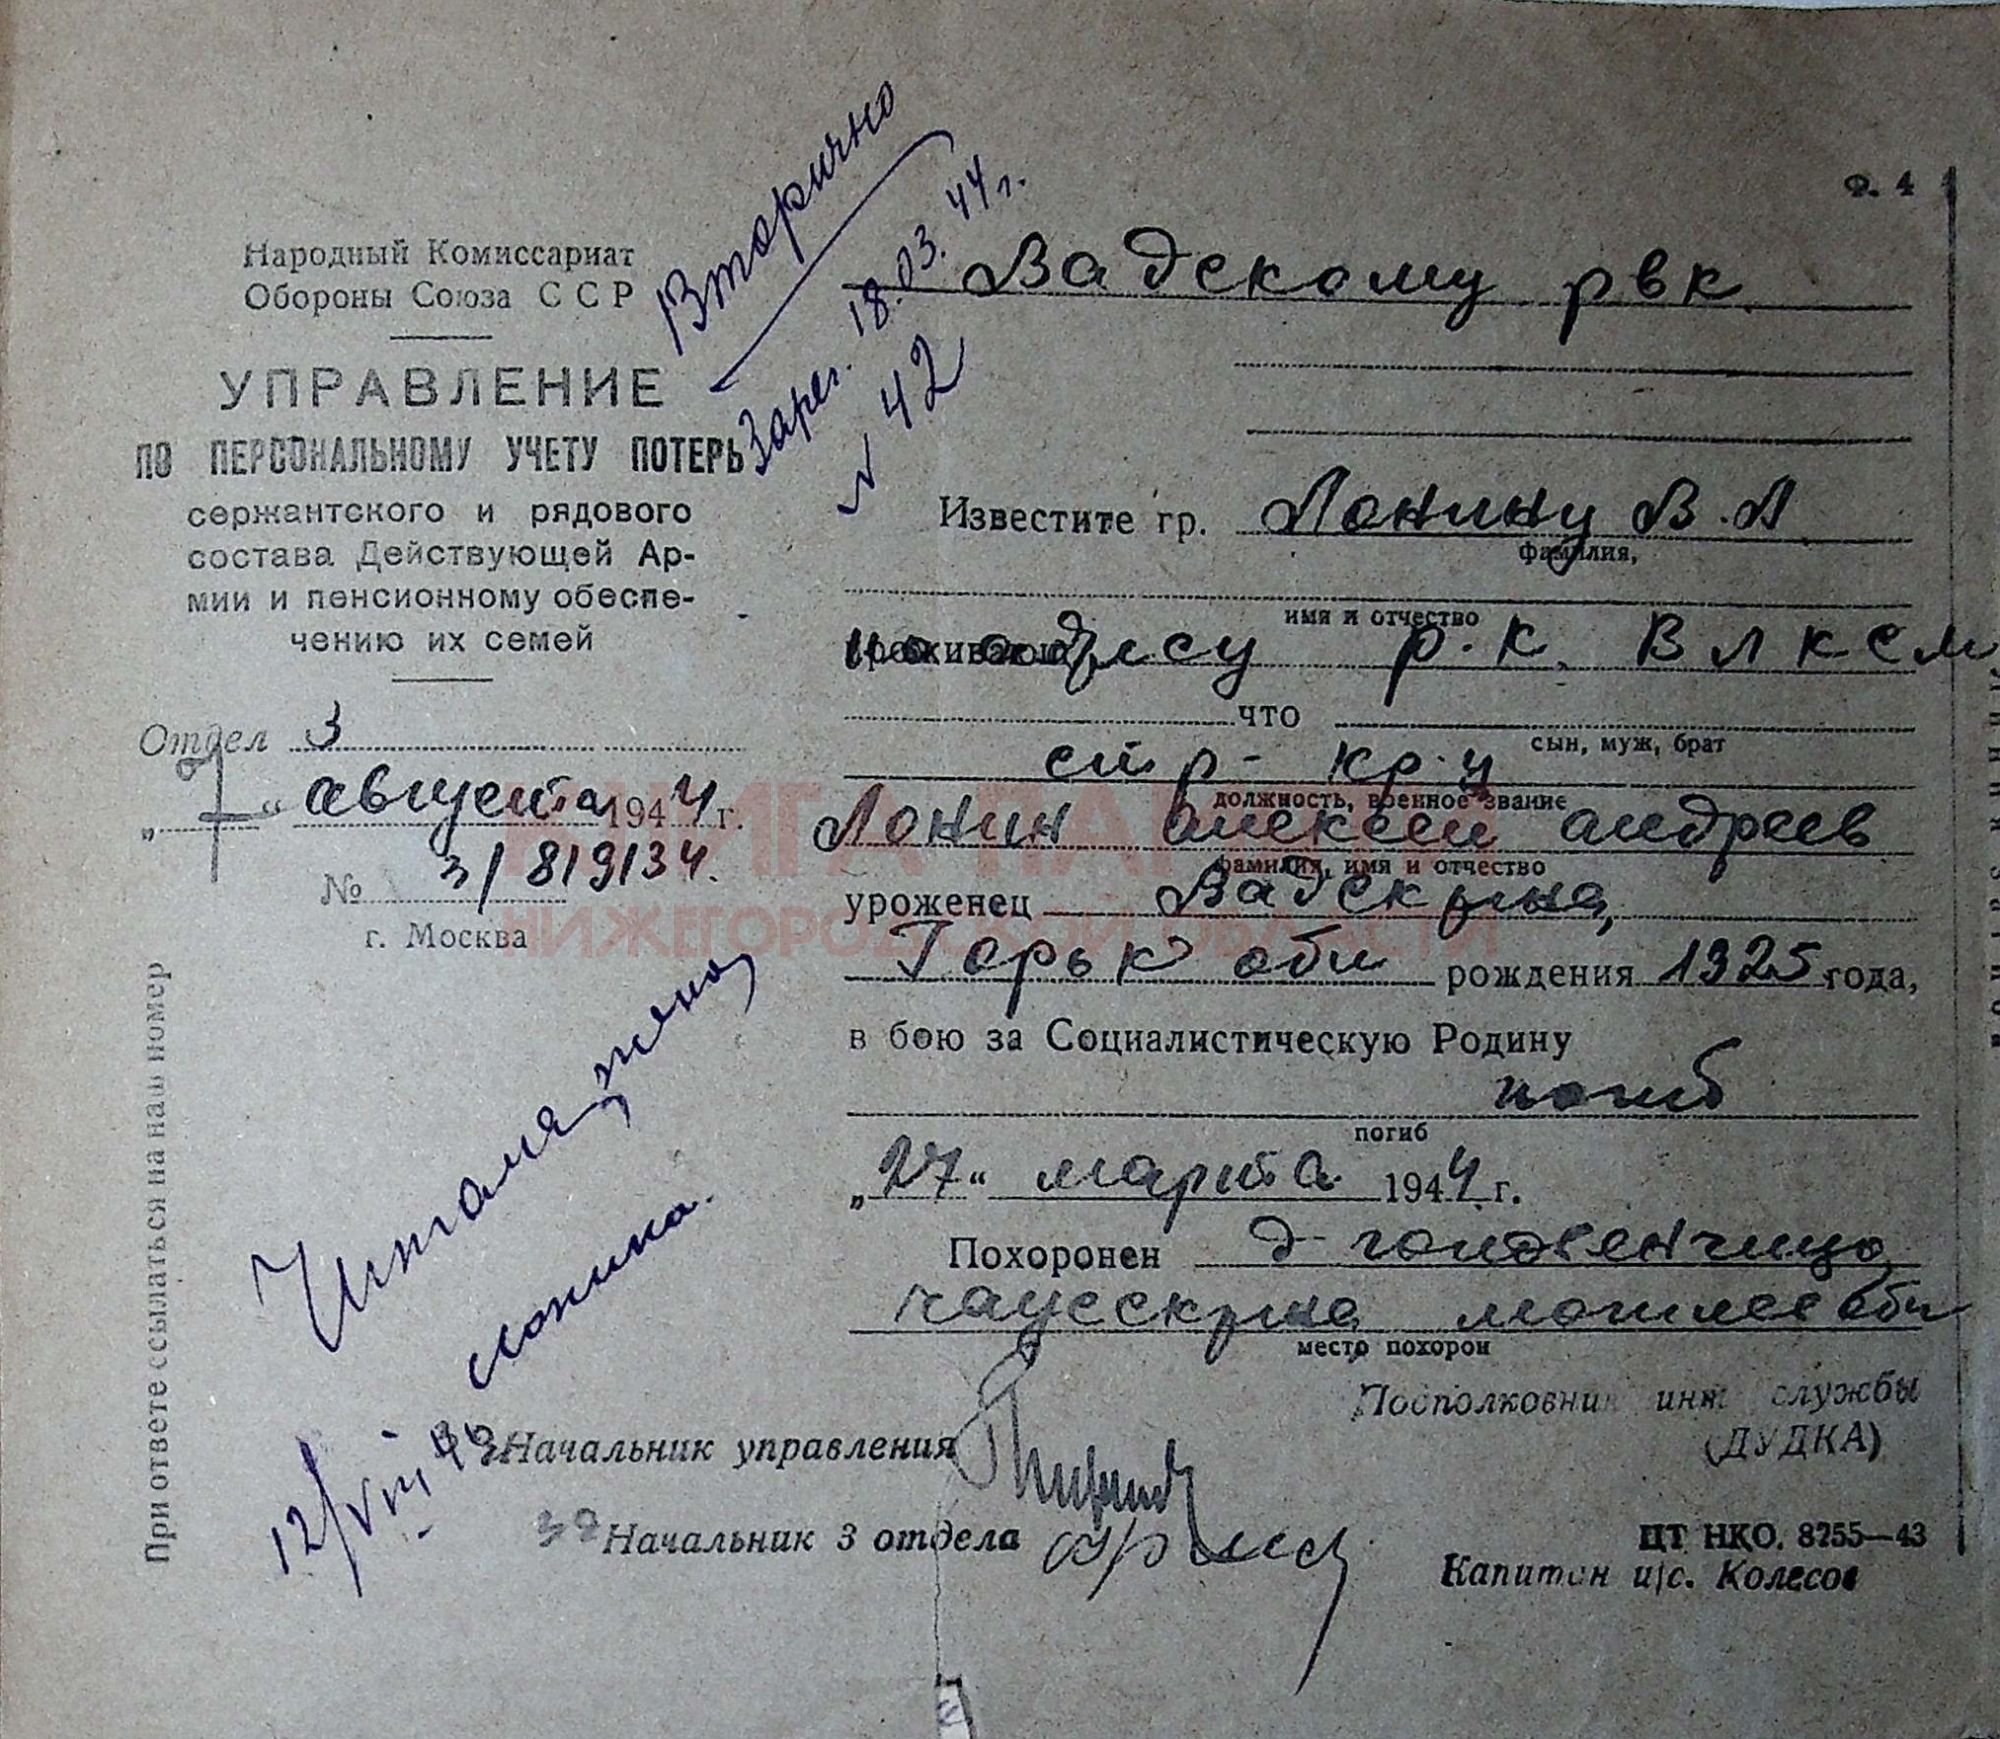 Ф. 4
Народный Комиссариат
Обороны Союза ССР
УПРАВЛЕНИЕ
ПО ПЕРСОНАЛЬНОМУ УЧЕТУ ПОТЕРЬ
сержантского и рядового
состава Действующей Ар-
мии и пенсионному обеспе-
чению их семей
Отдел 3
„7“ августа 1944 г.
№ 3/819134.
г. Москва
При ответе ссылаться на наш номер
Вторично
Зарег. 18.03.44 г.
N 42
Вадскому рвк
Известите гр. Лонину В.А
фамилия,
имя и отчество
по адресу р.к. ВЛКСМ
что
сын, муж, брат
стр- кр-ц
должность, военное звание
Лонин Алексей Андреев
фамилия, имя и отчество
уроженец Вадск рна,
Горьк обл рождения 1925 года,
в бою за Социалистическую Родину
погиб
погиб
„27“ марта 1944 г.
Похоронен д-
Чаусск рна Могилев обл
место похорон
12/VIII 44
Начальник управления
Подполковник инт службы
(ДУДКА)
Начальник 3 отдела
ЦТ НКО. 8255—43
Капитан и/с. Колесов
КНИГА ПАМЯТИ
НИЖЕГОРОДСКОЙ ОБЛАСТИ